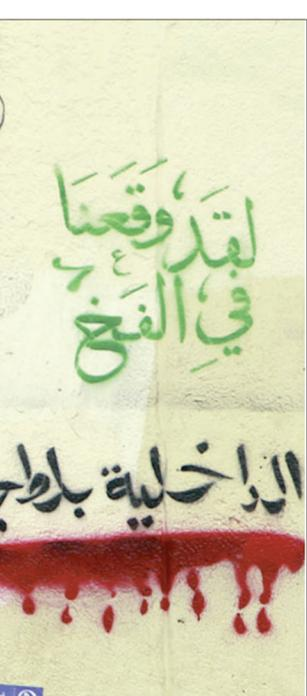 لَقَدْ وَقَعْنَا
فِي الفَخ
الداخلية بلطج